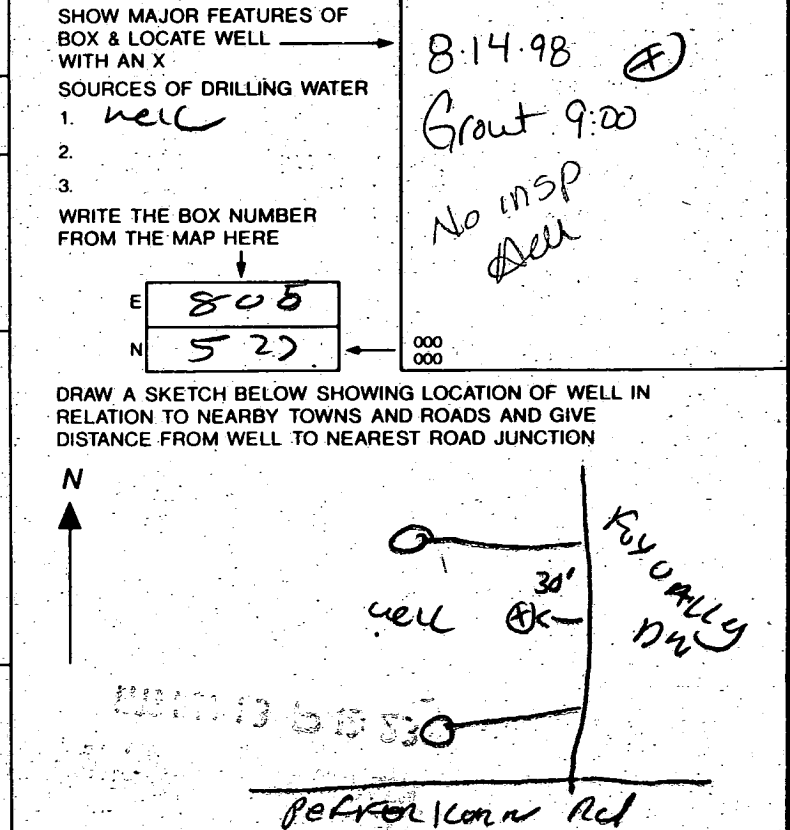 SHOW MAJOR FEATURES OF
BOX & LOCATE WELL
WITH AN X
SOURCES OF DRILLING WATER
1. well
2.
3.
WRITE THE BOX NUMBER
FROM THE MAP HERE
E 805
N 527
8·14·98 X
Grout 9:00
No insp
000
000
DRAW A SKETCH BELOW SHOWING LOCATION OF WELL IN
RELATION TO NEARBY TOWNS AND ROADS AND GIVE
DISTANCE FROM WELL TO NEAREST ROAD JUNCTION
N
30'
well X
Rd